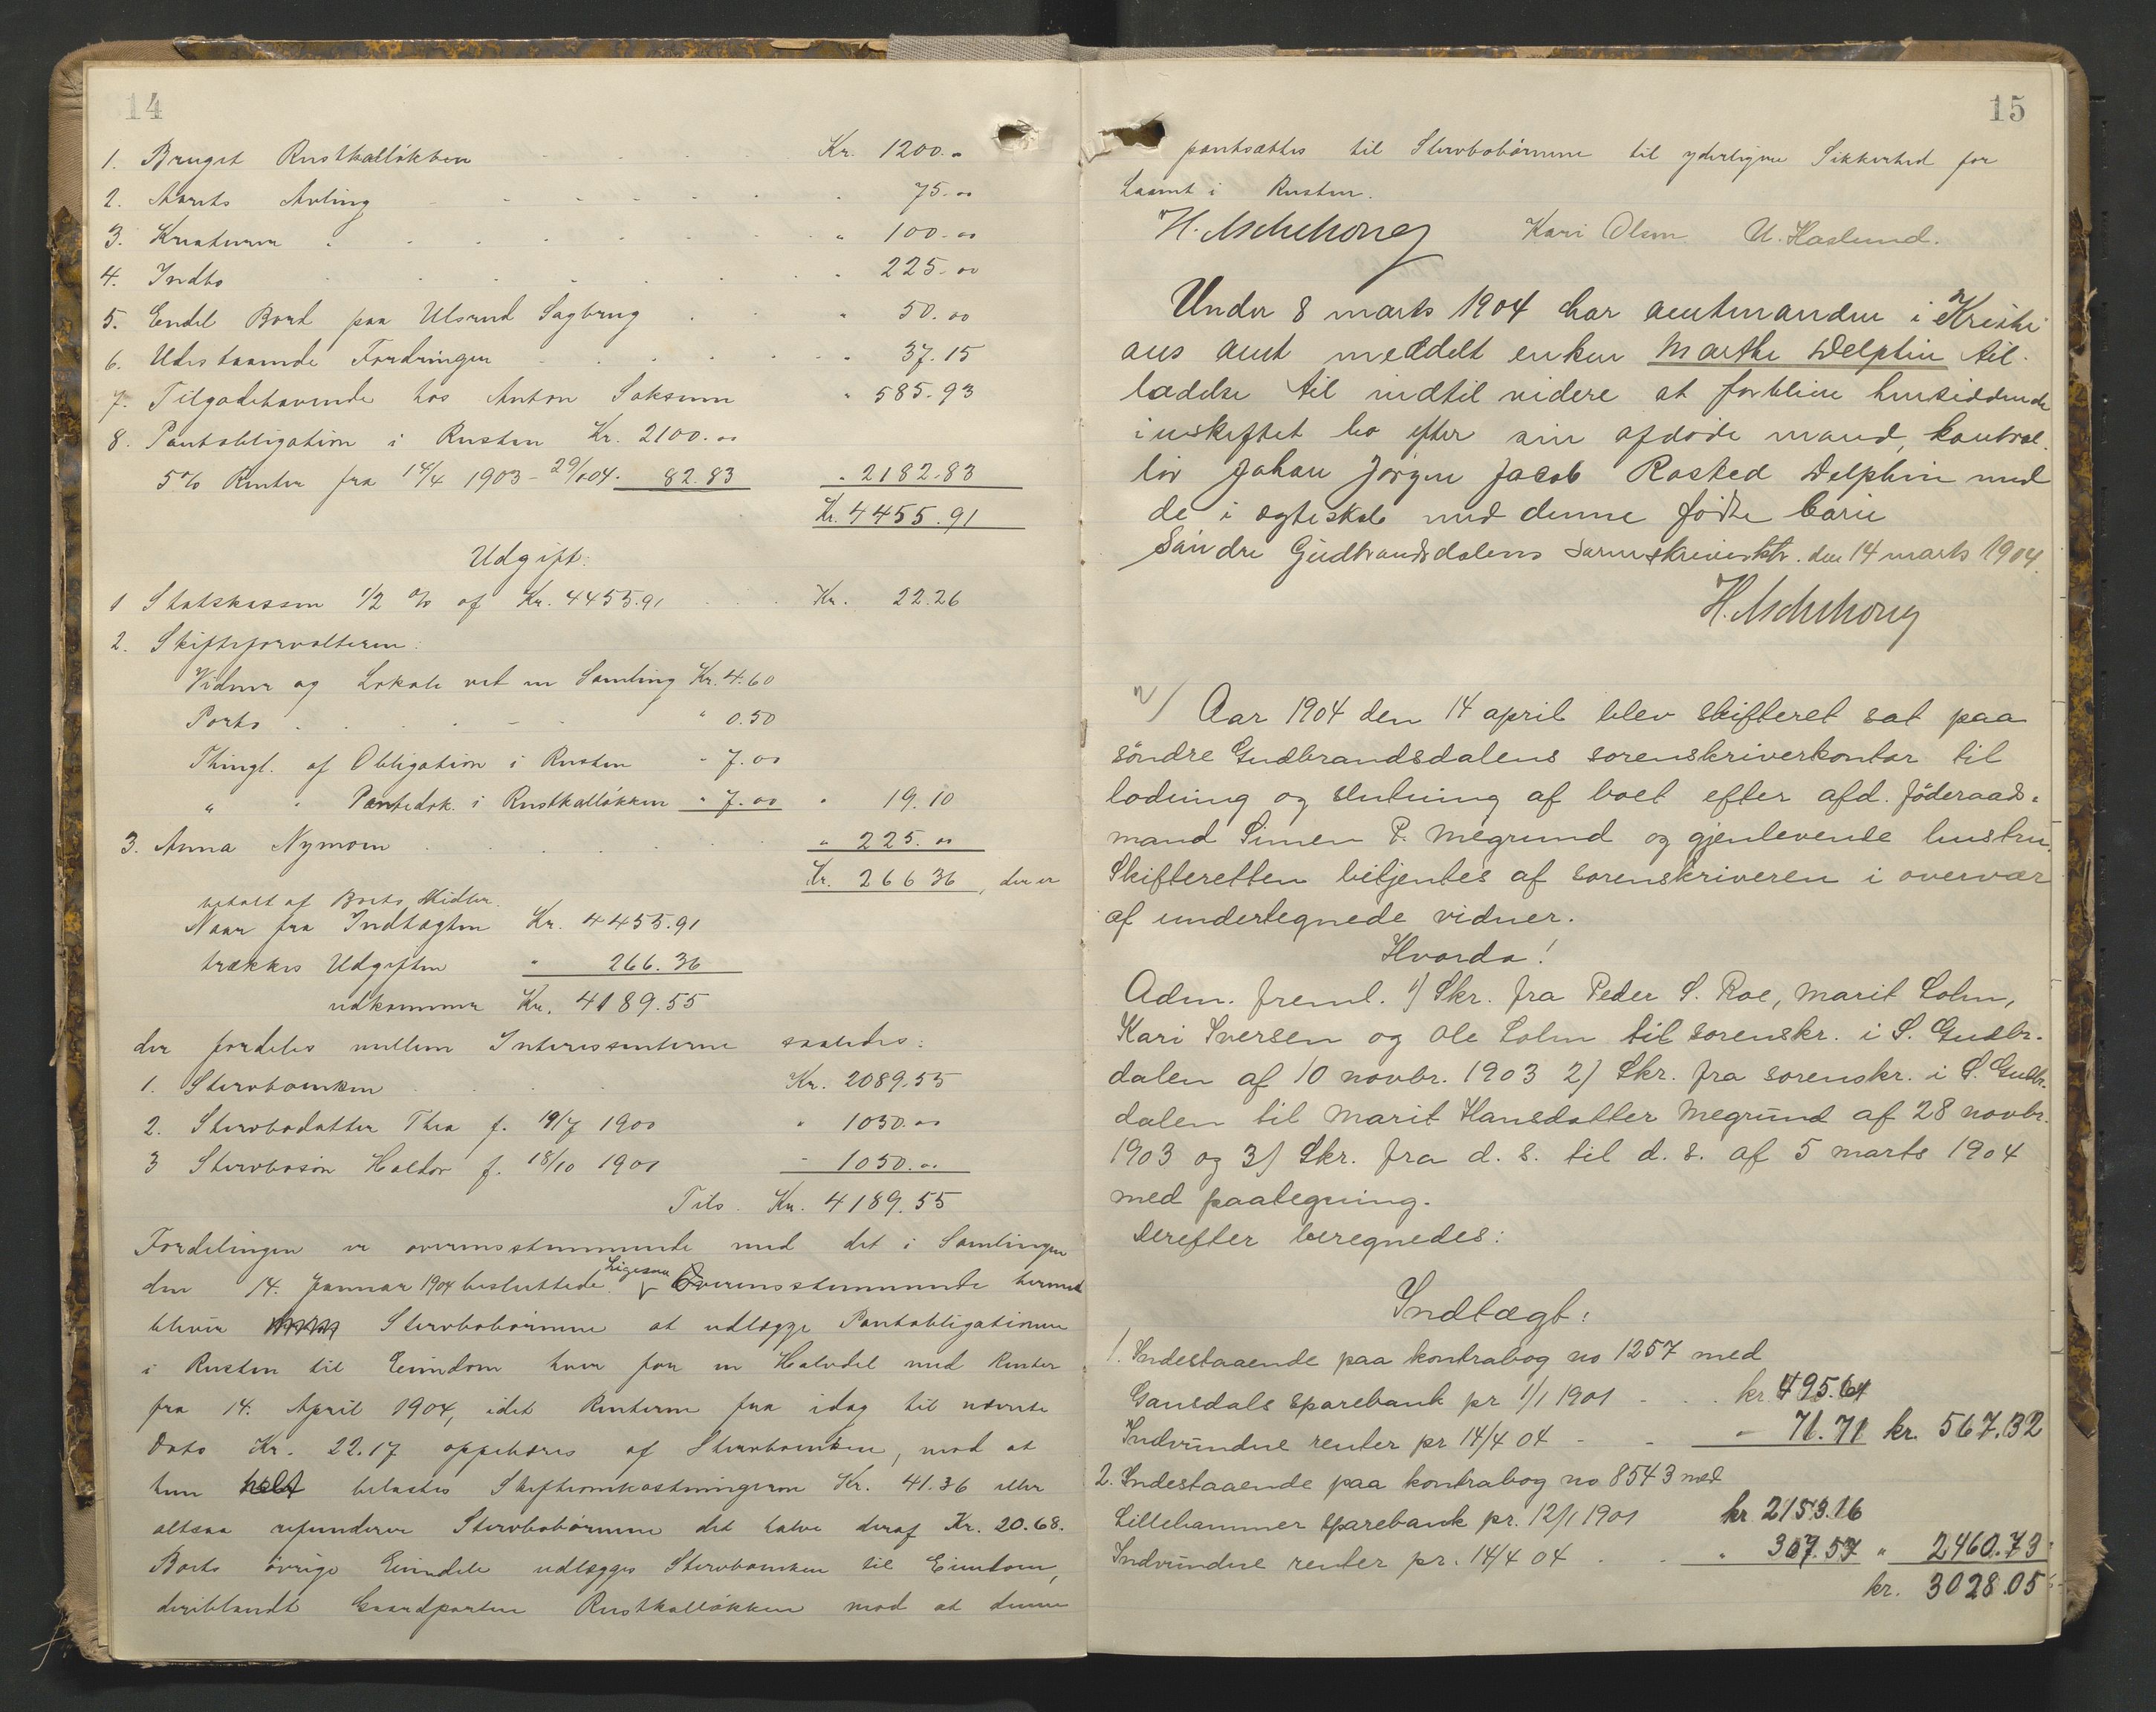 14
1. Bruget Rustkalløkken Kr. 1200. "
2. Aarets Avling " 75. 00
3. Kreaturer " 100. 00
4. Indbo " 225. 00
5. Endel Bord paa Ulsrud Sagbrug " 50. 00
6. Udestaaende Fordringer " 37. 15
7. Tilgodehavende hos Anton Saksum " 585. 93
8. Pantobligation i Rusten Kr. 2100. 00
5 % Renter fra 14/4 1903 - 29/1 04. 82. 83 " 2182. 83
Kr. 4455. 91
Udgift:
1 Statskassen 1/2 % af Kr. 4455.91 Kr. 22. 26
2. Skifteforvalteren:
Vidner og Lokale ved en Samling Kr. 4. 60
Porto " 0. 50
Thingl. af Obligation i Rusten " 7. 00
" " Pantedok. i Rustkalløkken " 7. 00 " 19. 10
3. Anna Nymoen " 225. 00
Kr. 266 36, der er
betalt af Boets Midler.
Naar fra Indtægten Kr. 4455.91
trækkes Udgiften " 266. 36
udkommer Kr. 4189. 55
der fordeles mellem Interessenterne saaledes:
1. Stervboenken Kr. 2089. 55
2. Stervbodatter Thea f. 19/7 1900 " 1050. 00
3 Stervbosøn Haldor f. 18/10 1901 " 1050. 00
Tils. Kr. 4189. 55
Fordelingen er overensstemmende med det i Samlingen
den 14. Januar 1904 besluttede. Ligesaa Overensstemmende hermed
bliver Stervbobørnene at udlægge Pantobligationen
i Rusten til Eiendom hver for en Halvdel med Renter
fra 14. April 1904, idet Renterne fra idag til nævnte
Dato Kr. 22. 17 oppebæres af Stervboenken, mod at
hun belastes Skifteomkostningerne Kr. 41. 36 eller
altsaa refunderer Stervbobørnene det halve deraf Kr. 20. 68.
Boets øvrige Eiendele udlægges Stervboenken til Eiendom,
deriblandt Gaardparten Rustkalløkken mod at denne
15
pantsættes til Stervbobørnene til yderligere Sikkerhed for
Laanet i Rusten.
H. Aschehoug Kari Olsen U. Haslund.
Under 8 marts 1904 har amtmanden i Kristi
ans amt meddelt enken Marthe Delphin til-
ladelse til indtil videre at forblive hensiddende
i uskiftet bo efter sin afdøde mand, kontrol-
lør Johan Jørgen Jacob Rosted Delphin med
de i ægteskab med denne fødte børn
Søndre Gudbrandsdalens sorenskriverktr. den 14 marts 1904.
H. Aschehoug
Aar 1904 den 14 april blev skifteret sat paa
søndre Gudbrandsdalens sorenskriverkontor til
lodning og slutning af boet efter afd. føderaads-
mand Simen P. Megrund og gjenlevende hustru.
Skifteretten betjentes af sorenskriveren i overvær
af undertegnede vidner.
Hvorda!
Adm. freml. 1) Skr. fra Peder S. Roe, Marit Holm,
Kari Iversen og Ole Holm til sorenskr. i S. Gudbr.
dalen af 10 novbr. 1903 2) Skr. fra sorenskr. i S. Gudbr.
dalen til Marit Hansdatter Megrund af 28 novbr.
1903 og 3) Skr. fra d. s. til d. s. af 5 marts 1904
med paategning.
Derefter beregnedes:
Indtægt:
1. Indestaaende paa kontrabog no 1257 med
Gausdals sparebank pr 1/1 1901 kr. 495.61
Indvundne renter pr 14/4 04 " 71.71 kr. 567.32
2. Indestaaende paa kontrabog no 8543 med
Lillehammer sparebank pr. 12/1 1901 kr 2153.16
Indvundne renter pr. 14/4 04 " 307.57 " 2460.73
kr. 3028.05